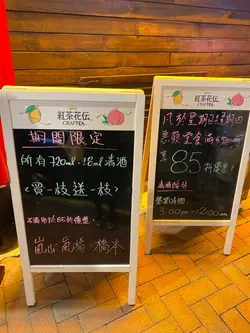 紅茶花伝
CRAFTEA
期間限定
所有720ml·1.8ml清酒
<買一枝送一枝>
不適用於85折優惠
嵐心·嵐橋·橋本
紅茶花伝
CRAFTEA
凡於星期日至星期四
惠顧堂食滿
享85折優惠
清酒除外
營業時間
3:00pm-12:00am